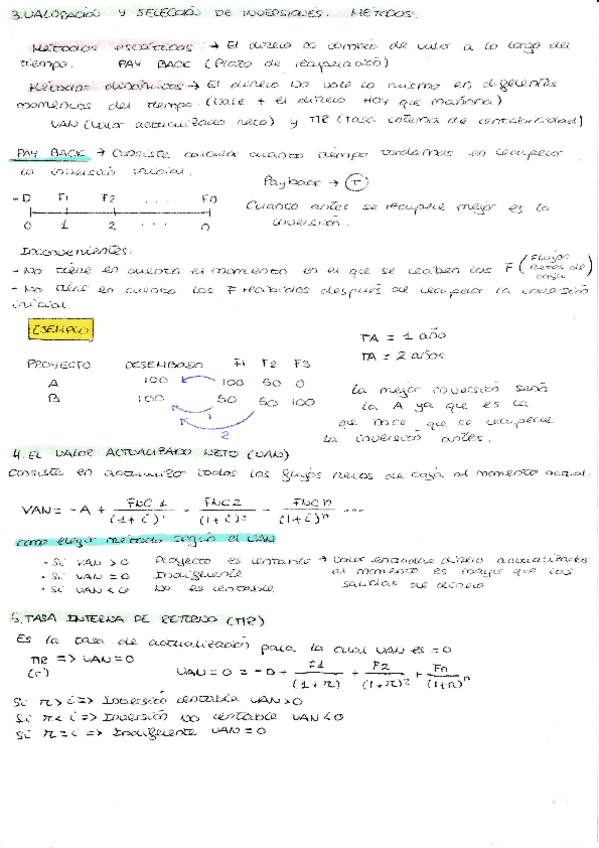 3. VALORACIÓN Y SELECCIÓN DE INVERSIONES. MÉTODOS.
Métodos estáticos → El dinero no cambia de valor a lo largo del
tiempo. PAY BACK (Plazo de recuperación)
Métodos dinámicos → El dinero no vale lo mismo en diferentes
momentos del tiempo. (Vale + el dinero HOY que mañana)
VAN (Valor actualizado neto) y TIR (Tasa interna de rentabilidad)
PAY BACK → Consiste calcular cuanto tiempo tardamos en recuperar
la inversión inicial.
Payback → T
-D F1 F2 ... Fn
0 1 2 ... n
Cuanto antes se recupere mejor es la
inversión.
Inconvenientes:
- No tiene en cuenta el momento en el que se reciben los F (Flujos netos de caja)
- No tiene en cuenta los F recibidos después de recuperar la inversión
inicial.
EJEMPLO
TA = 1 año
TA = 2 años
PROYECTO DESEMBOLSO F1 F2 F3
A 100 100 50 0
B 100 50 50 100
1
2
La mejor inversión será
la A ya que es la
que hace que se recupere
la inversión antes.
4. EL VALOR ACTUALIZADO NETO (VAN)
Consiste en actualizar todos los flujos netos de caja al momento actual.
VAN = -A + FNC 1 / (1+i)¹ - FNC2 / (1+i)² - FNC n / (1+i)ⁿ ...
como elegir método según el VAN
· Si VAN > 0 Proyecto es rentable → Valor entradas dinero actualizados
· Si VAN = 0 Indiferente al momento es mayor que las
· Si VAN < 0 No es rentable salidas de dinero
5. TASA INTERNA DE RETORNO (TIR)
Es la tasa de actualización para la cual VAN es = 0
TIR => VAN = 0
(r)
VAN = 0 = -D + F1 / (1+r) + F2 / (1+r)² + Fn / (1+r)ⁿ
Si r > i => Inversión rentable VAN > 0
Si r < i => Inversión NO rentable VAN < 0
Si r = i => Indiferente VAN = 0